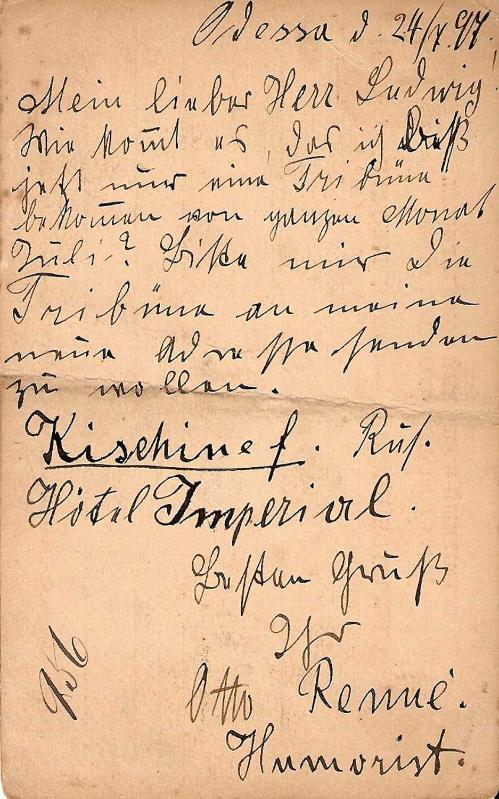 Odessa d. 24/7. 97.
Mein lieber Herr Ludwig!
Wie kom̅t es, das ich biß
jetzt nur eine Tribüne
bekom̅en von ganzen Monat
Juli? Bitte mir die
Tribüne an meine
neue Adresse senden
zu wollen.
Kischinef. Rus.
Hôtel Imperial.
Besten Gruß
Ihr
Otto Renné.
Humorist.
956